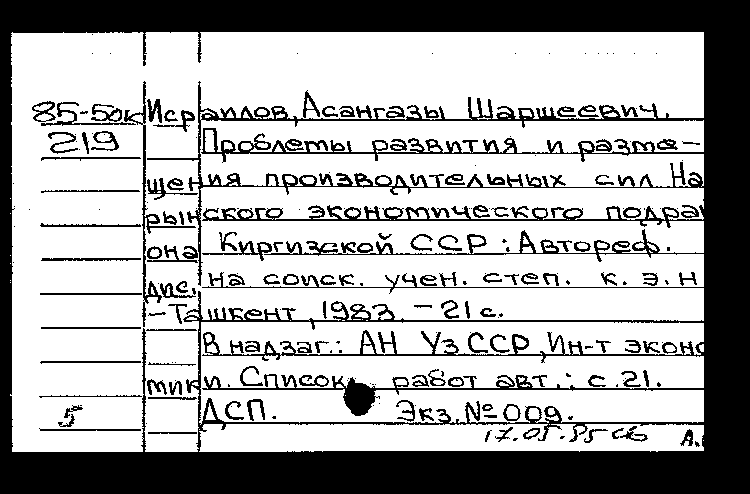 85-50к Исраилов, Асангазы Шаршеевич.
219 Проблемы развития и разме-
щения производительных сил На
рынского экономического подра
она Киргизской ССР : Автореф.
дис. на соиск. учен. степ. к. э. н
-Ташкент, 1983. - 21 с.
В надзаг.: АН УзССР, Ин-т эконо
мики. Список работ авт.: с. 21.
5 ДСП. Экз. № 009.
17.05.85